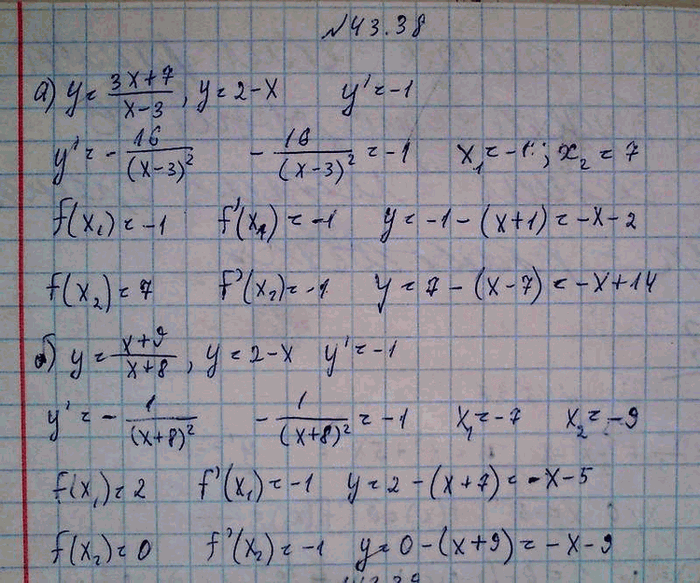 №43.38
а) y = (3x+7)/(x-3), y = 2-x y' = -1
y' = -16/(x-3)² -16/(x-3)² = -1 x₁ = -1; x₂ = 7
f(x₁) = -1 f'(x₁) = -1 y = -1-(x+1) = -x-2
f(x₂) = 7 f'(x₂) = -1 y = 7-(x-7) = -x+14
б) y = (x+9)/(x+8), y = 2-x y' = -1
y' = -1/(x+8)² -1/(x+8)² = -1 x₁ = -7 x₂ = -9
f(x₁) = 2 f'(x₁) = -1 y = 2-(x+7) = -x-5
f(x₂) = 0 f'(x₂) = -1 y = 0-(x+9) = -x-9